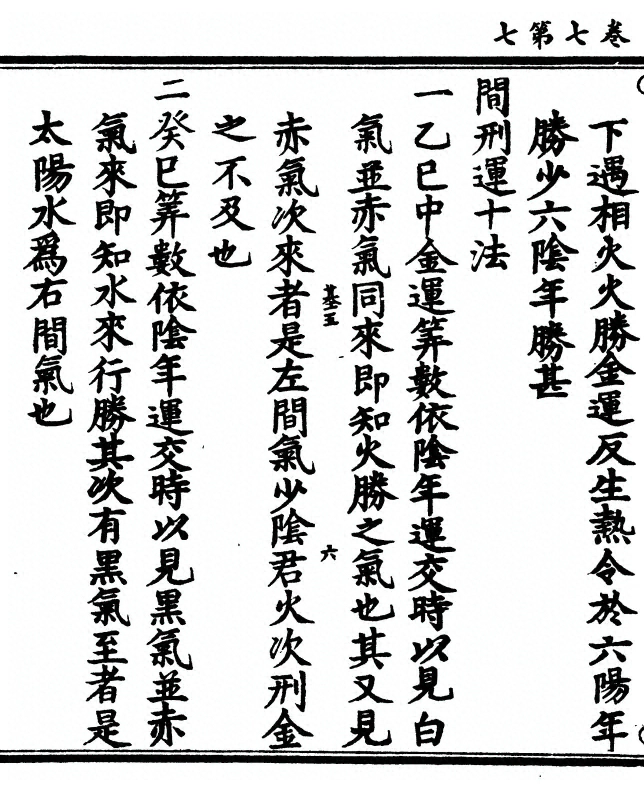 卷七第七
下遇相火火勝金運反生熱令於六陽年
勝少六陰年勝甚
間刑運十法
一乙巳中金運筭數依陰年運交時以見白
氣並赤氣同來即知火勝之氣也其又見
基五 六
赤氣次來者是左間氣少陰君火次刑金
之不及也
二癸巳筭數依陰年運交時以見黑氣並赤
氣來即知水來行勝其次有黑氣至者是
太陽水爲右間氣也